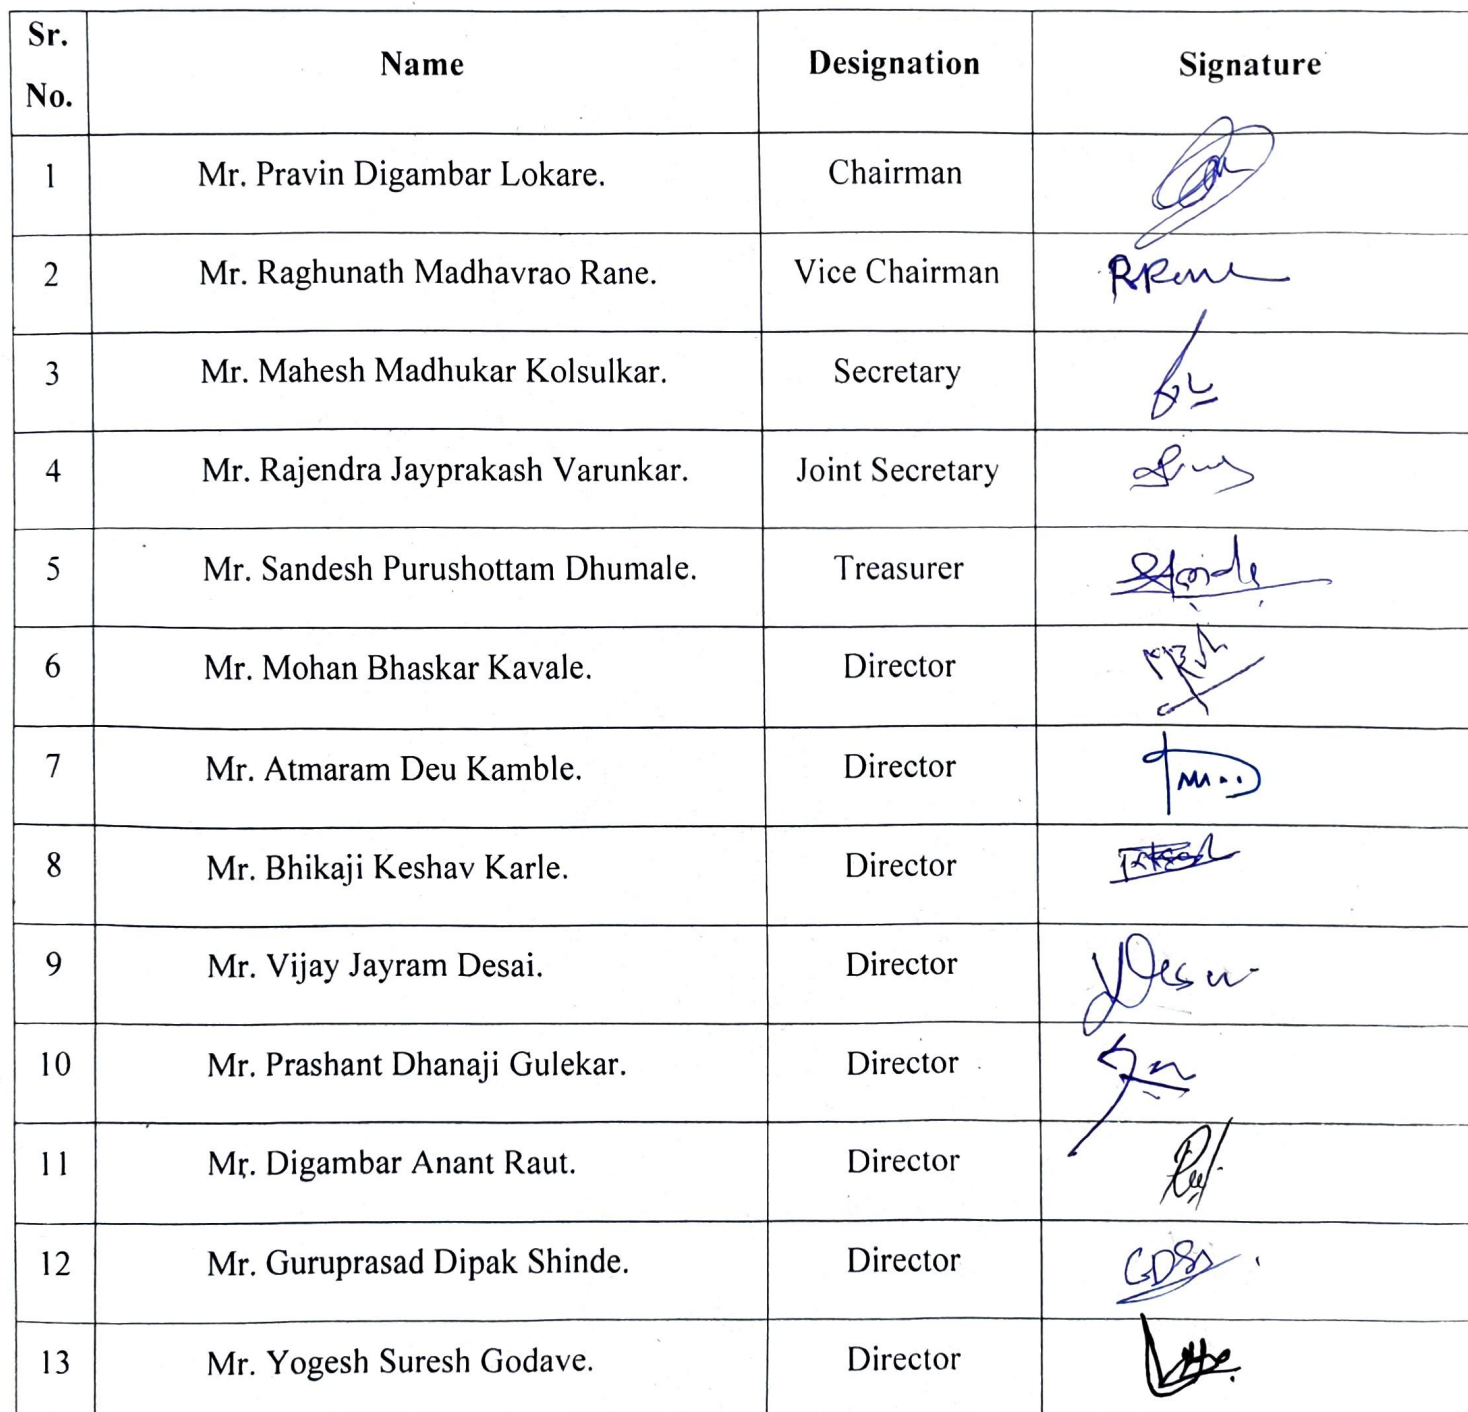 Sr. No. Name Designation Signature
1 Mr. Pravin Digambar Lokare. Chairman
2 Mr. Raghunath Madhavrao Rane. Vice Chairman RRane
3 Mr. Mahesh Madhukar Kolsulkar. Secretary
4 Mr. Rajendra Jayprakash Varunkar. Joint Secretary
5 Mr. Sandesh Purushottam Dhumale. Treasurer
6 Mr. Mohan Bhaskar Kavale. Director
7 Mr. Atmaram Deu Kamble. Director
8 Mr. Bhikaji Keshav Karle. Director
9 Mr. Vijay Jayram Desai. Director
10 Mr. Prashant Dhanaji Gulekar. Director
11 Mr. Digambar Anant Raut. Director
12 Mr. Guruprasad Dipak Shinde. Director
13 Mr. Yogesh Suresh Godave. Director